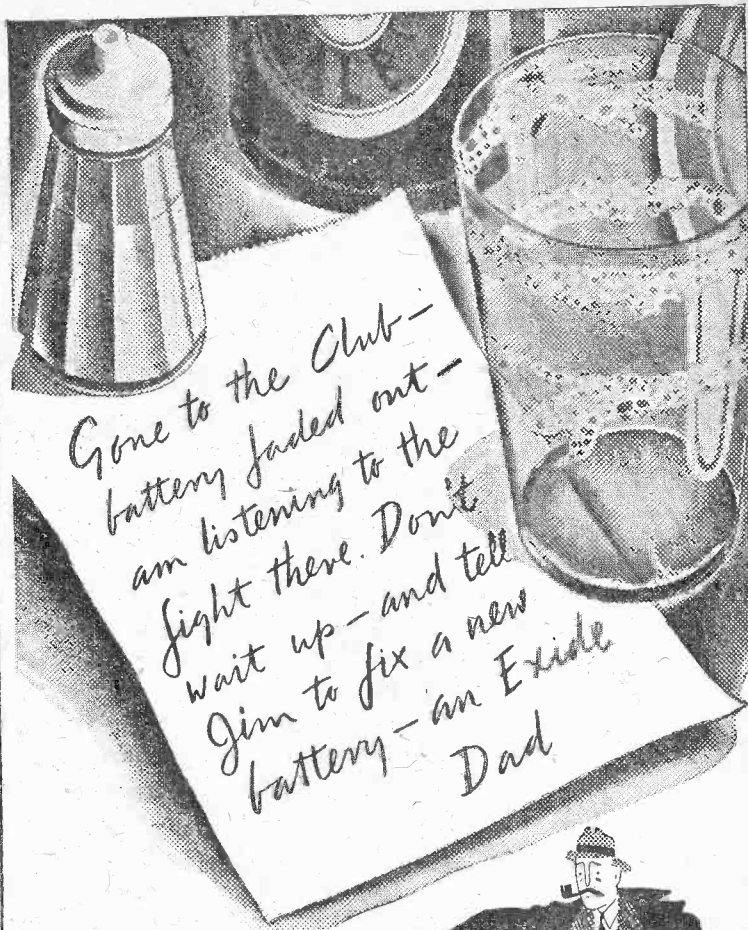 Gone to the Club—
battery faded out—
am listening to the
fight there. Don't
wait up—and tell
Jim to fix a new
battery—an Exide
Dad